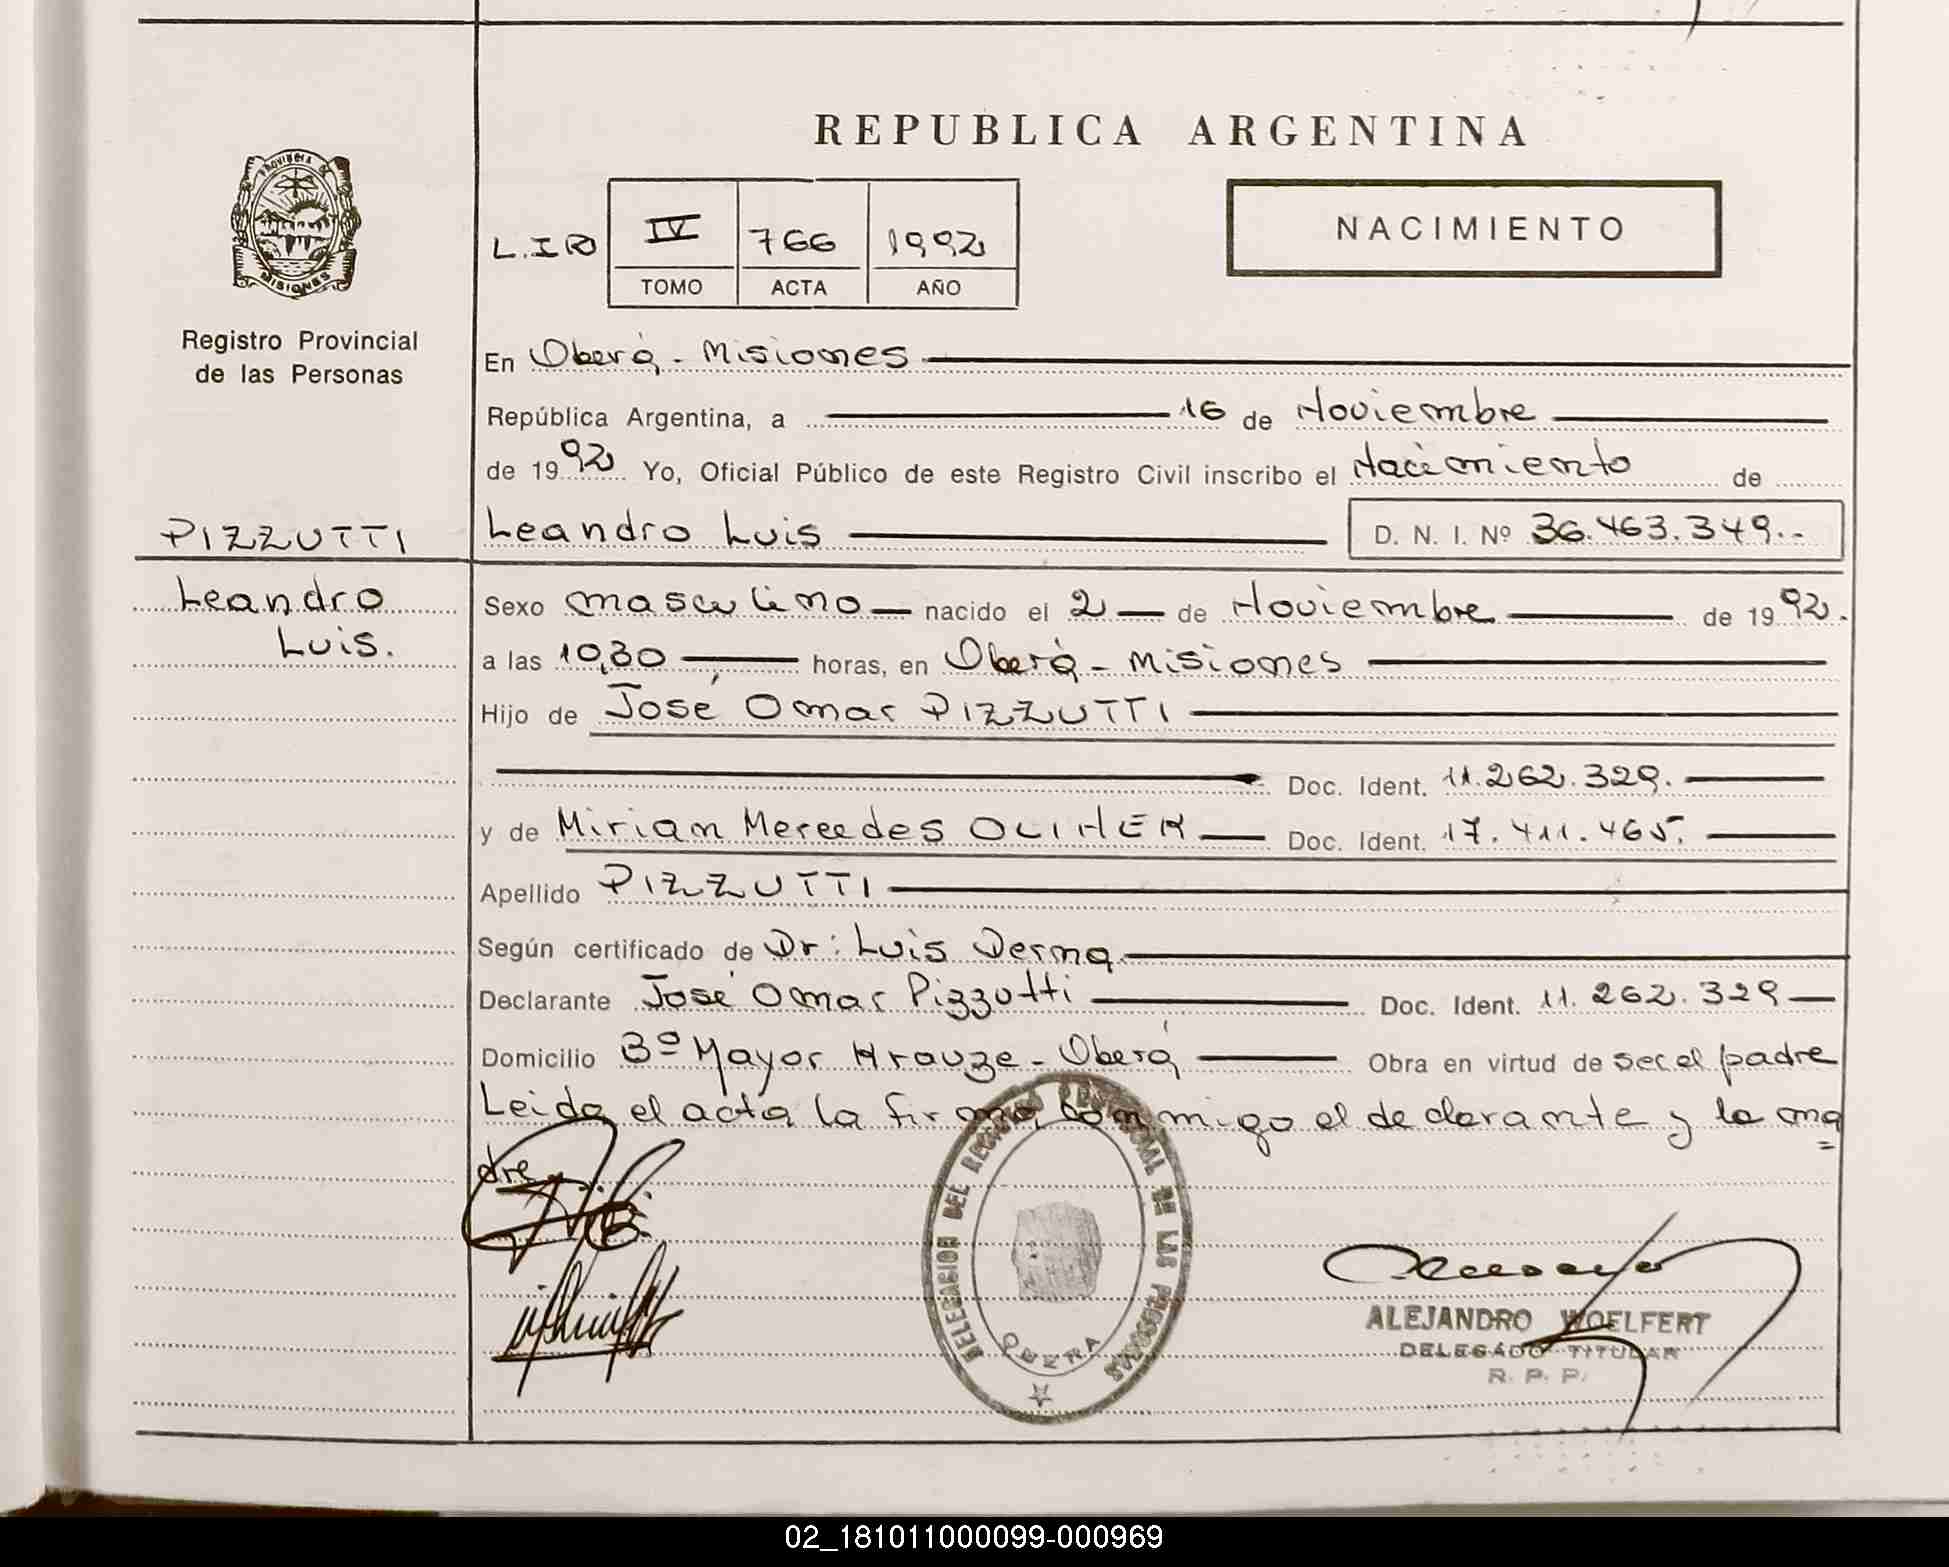 REPUBLICA ARGENTINA
PROVINCIA DE
MISIONES
Registro Provincial
de las Personas
L.IRO
IV 766 1992
TOMO ACTA AÑO
NACIMIENTO
En Oberá - Misiones
República Argentina, a 16 de Noviembre
de 1992 Yo, Oficial Público de este Registro Civil inscribo el Nacimiento de
PIZZUTTI
Leandro Luis D. N. I. Nº 36.463.349.-
Leandro
Luis.
Sexo masculino nacido el 2 de Noviembre de 1992.
a las 10,30 horas, en Oberá - Misiones
Hijo de José Omar PIZZUTTI
Doc. Ident. 11.262.329.
y de Mirian Mercedes Doc. Ident. 17.411.465.
Apellido PIZZUTTI
Según certificado de Dr: Luis Derna
Declarante José Omar Pizzutti Doc. Ident. 11.262.329
Domicilio Bº Mayor Krauze - Oberá Obra en virtud de ser el padre
Leida el acta la firma conmigo el declarante y la ma
dre
DELEGACION DEL REGISTRO PROVINCIAL DE LAS PERSONAS
OBERA
ALEJANDRO WOELFERT
DELEGADO TITULAR
R. P. P.
02_181011000099-000969